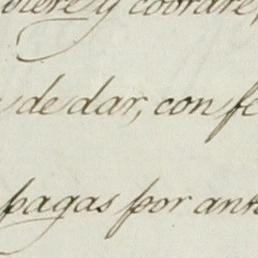 y cobrare,
de dar, con
pagas por